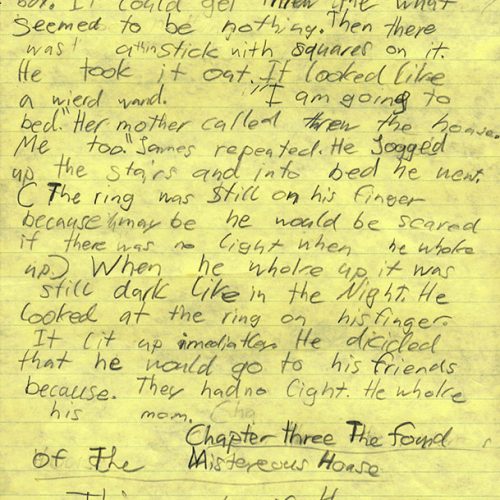 box. It could get threw the what
seemed to be nothing. Then there
was a thin stick with squares on it.
He took it out. It looked like
a wierd wand. "I am going to
bed." Her mother called threw the house.
Me too." James repeated. He jogged
up the stairs and into bed he went.
( The ring was still on his finger
because may be he would be scared
if there was no light when he whoke
up.) When he wholke up it was
still dark like in the Night. He
looked at the ring on his finger.
It lit up imediatley. He dicided
that he would go to his friends
because. They had no light. He wholke
his mom. Cha
Chapter three The found
of The Mistereous House